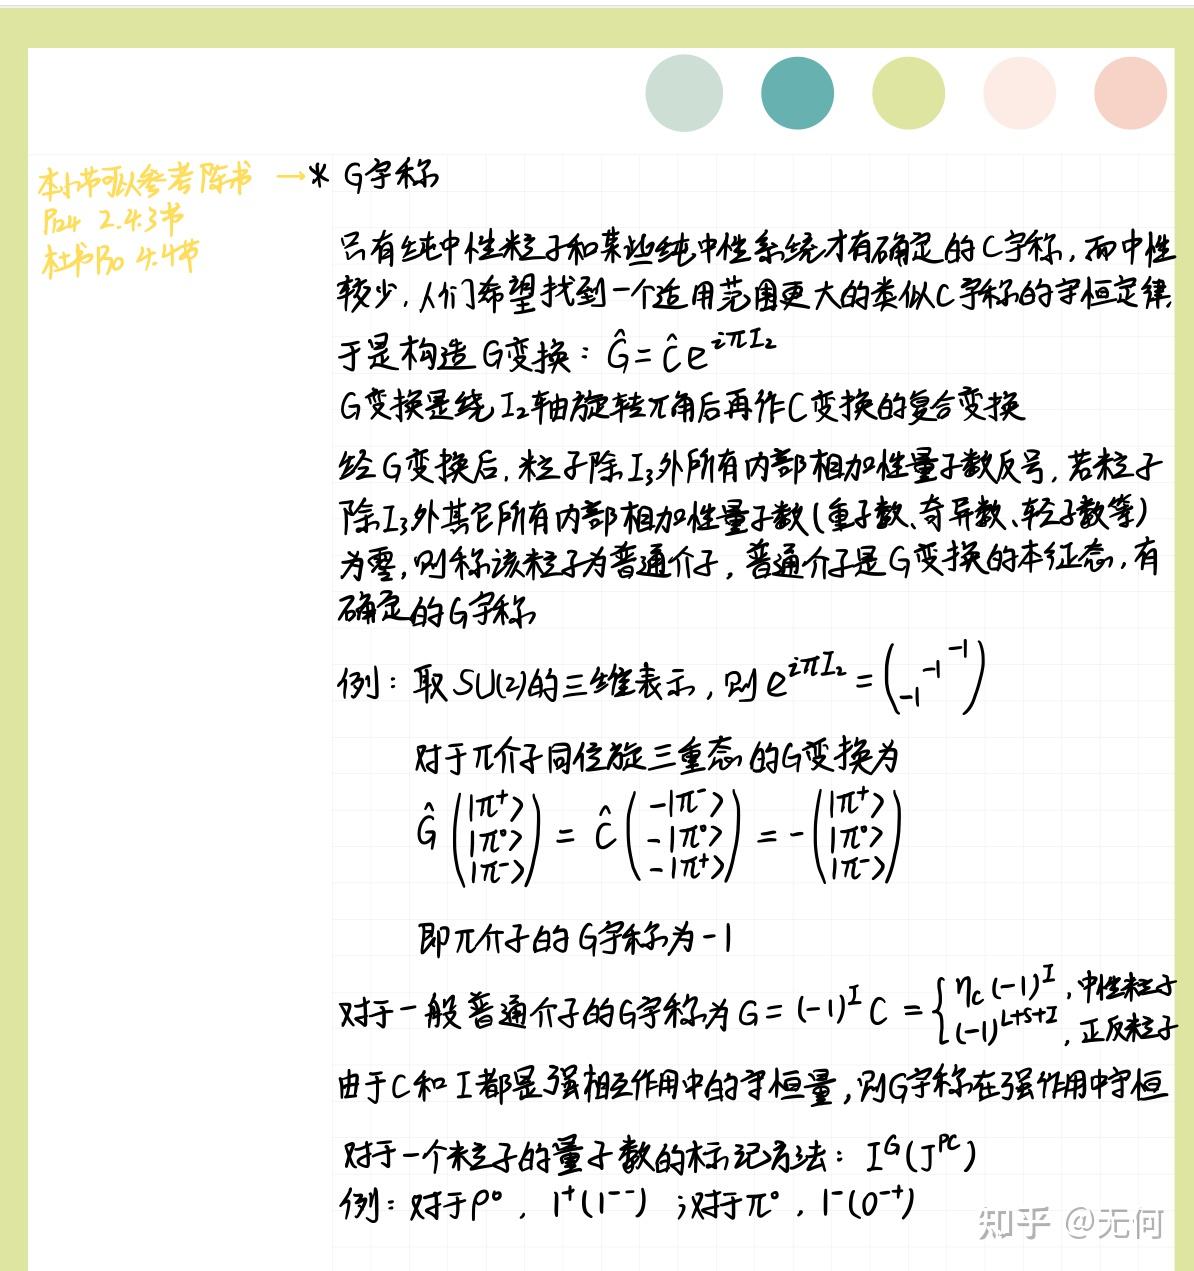 本小节可以参考陈书
P124 2.4.3节
杜书P70 4.4节
→* G宇称
只有纯中性粒子和某些纯中性系统才有确定的C宇称,而中性
较少,人们希望找到一个适用范围更大的类似C宇称的守恒定律,
于是构造G变换: Ĝ = Ĉe^{iπI₂}
G变换是绕I₂轴旋转π角后再作C变换的复合变换
经G变换后,粒子除I₃外所有内部相加性量子数反号,若粒子
除I₃外其它所有内部相加性量子数(重子数、奇异数、轻子数等)
为零,则称该粒子为普通介子,普通介子是G变换的本征态,有
确定的G宇称
例: 取SU(2)的三维表示,则 e^{iπI₂} = ( -1 -1 -1 )
对于π介子同位旋三重态的G变换为
Ĝ ( |π⁺> |π⁰> |π⁻> ) = Ĉ ( -|π⁻> -|π⁰> -|π⁺> ) = - ( |π⁺> |π⁰> |π⁻> )
即π介子的G宇称为-1
对于一般普通介子的G宇称为 G = (-1)^I C = { η_C (-1)^I , 中性粒子
(-1)^{L+S+I} , 正反粒子
由于C和I都是强相互作用中的守恒量,则G宇称在强作用中守恒
对于一个粒子的量子数的标记方法: I^G(J^{PC})
例: 对于ρ⁰, 1⁺(1⁻⁻) ;对于π⁰, 1⁻(0⁻⁺)
知乎 @无何